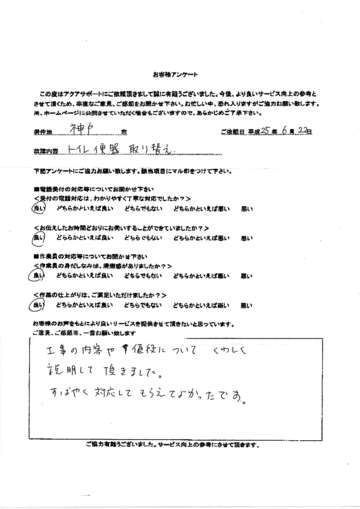 お客様アンケート
この度はアクアサポートにご依頼頂きまして誠に有難うございました。今後、より良いサービス向上の参考と
させて頂くため、率直なご意見、ご感想をお聞かせ下さい。お忙しい中、恐れ入りますがご協力お願い致します。
尚、ホームページに公開させていただく場合もございますので、あらかじめご了承下さい。
所在地 神戸 市 ご依頼日 平成25年6月22日
故障内容 トイレ便器 取り替え
下記アンケートにご協力お願い致します。該当項目にマル印をつけて下さい。
■電話受付の対応等についてお聞かせ下さい
<受付の電話対応は、わかりやすく丁寧な対応でしたか?>
良い どちらかといえば良い どちらでもない どちらかといえば悪い 悪い
<お伝えしたお時間どおりにお伺いすることができていましたか?>
良い どちらかといえば良い どちらでもない どちらかといえば悪い 悪い
■作業員の対応等についてお聞かせ下さい
<作業員の身だしなみは、清潔感がありましたか?>
良い どちらかといえば良い どちらでもない どちらかといえば悪い 悪い
<作業の仕上がりは、ご満足いただけましたか?>
良い どちらかといえば良い どちらでもない どちらかといえば悪い 悪い
お客様のお声をもとにより良いサービスを提供させて頂きたいと思っています。
ご意見、ご感想等、一言お願い致します
工事の内容や 価段について くわしく
説明して 頂きました。
すばやく 対応して もらえてよかったです。
ご協力有難うございました。サービス向上の参考にさせて頂きます。